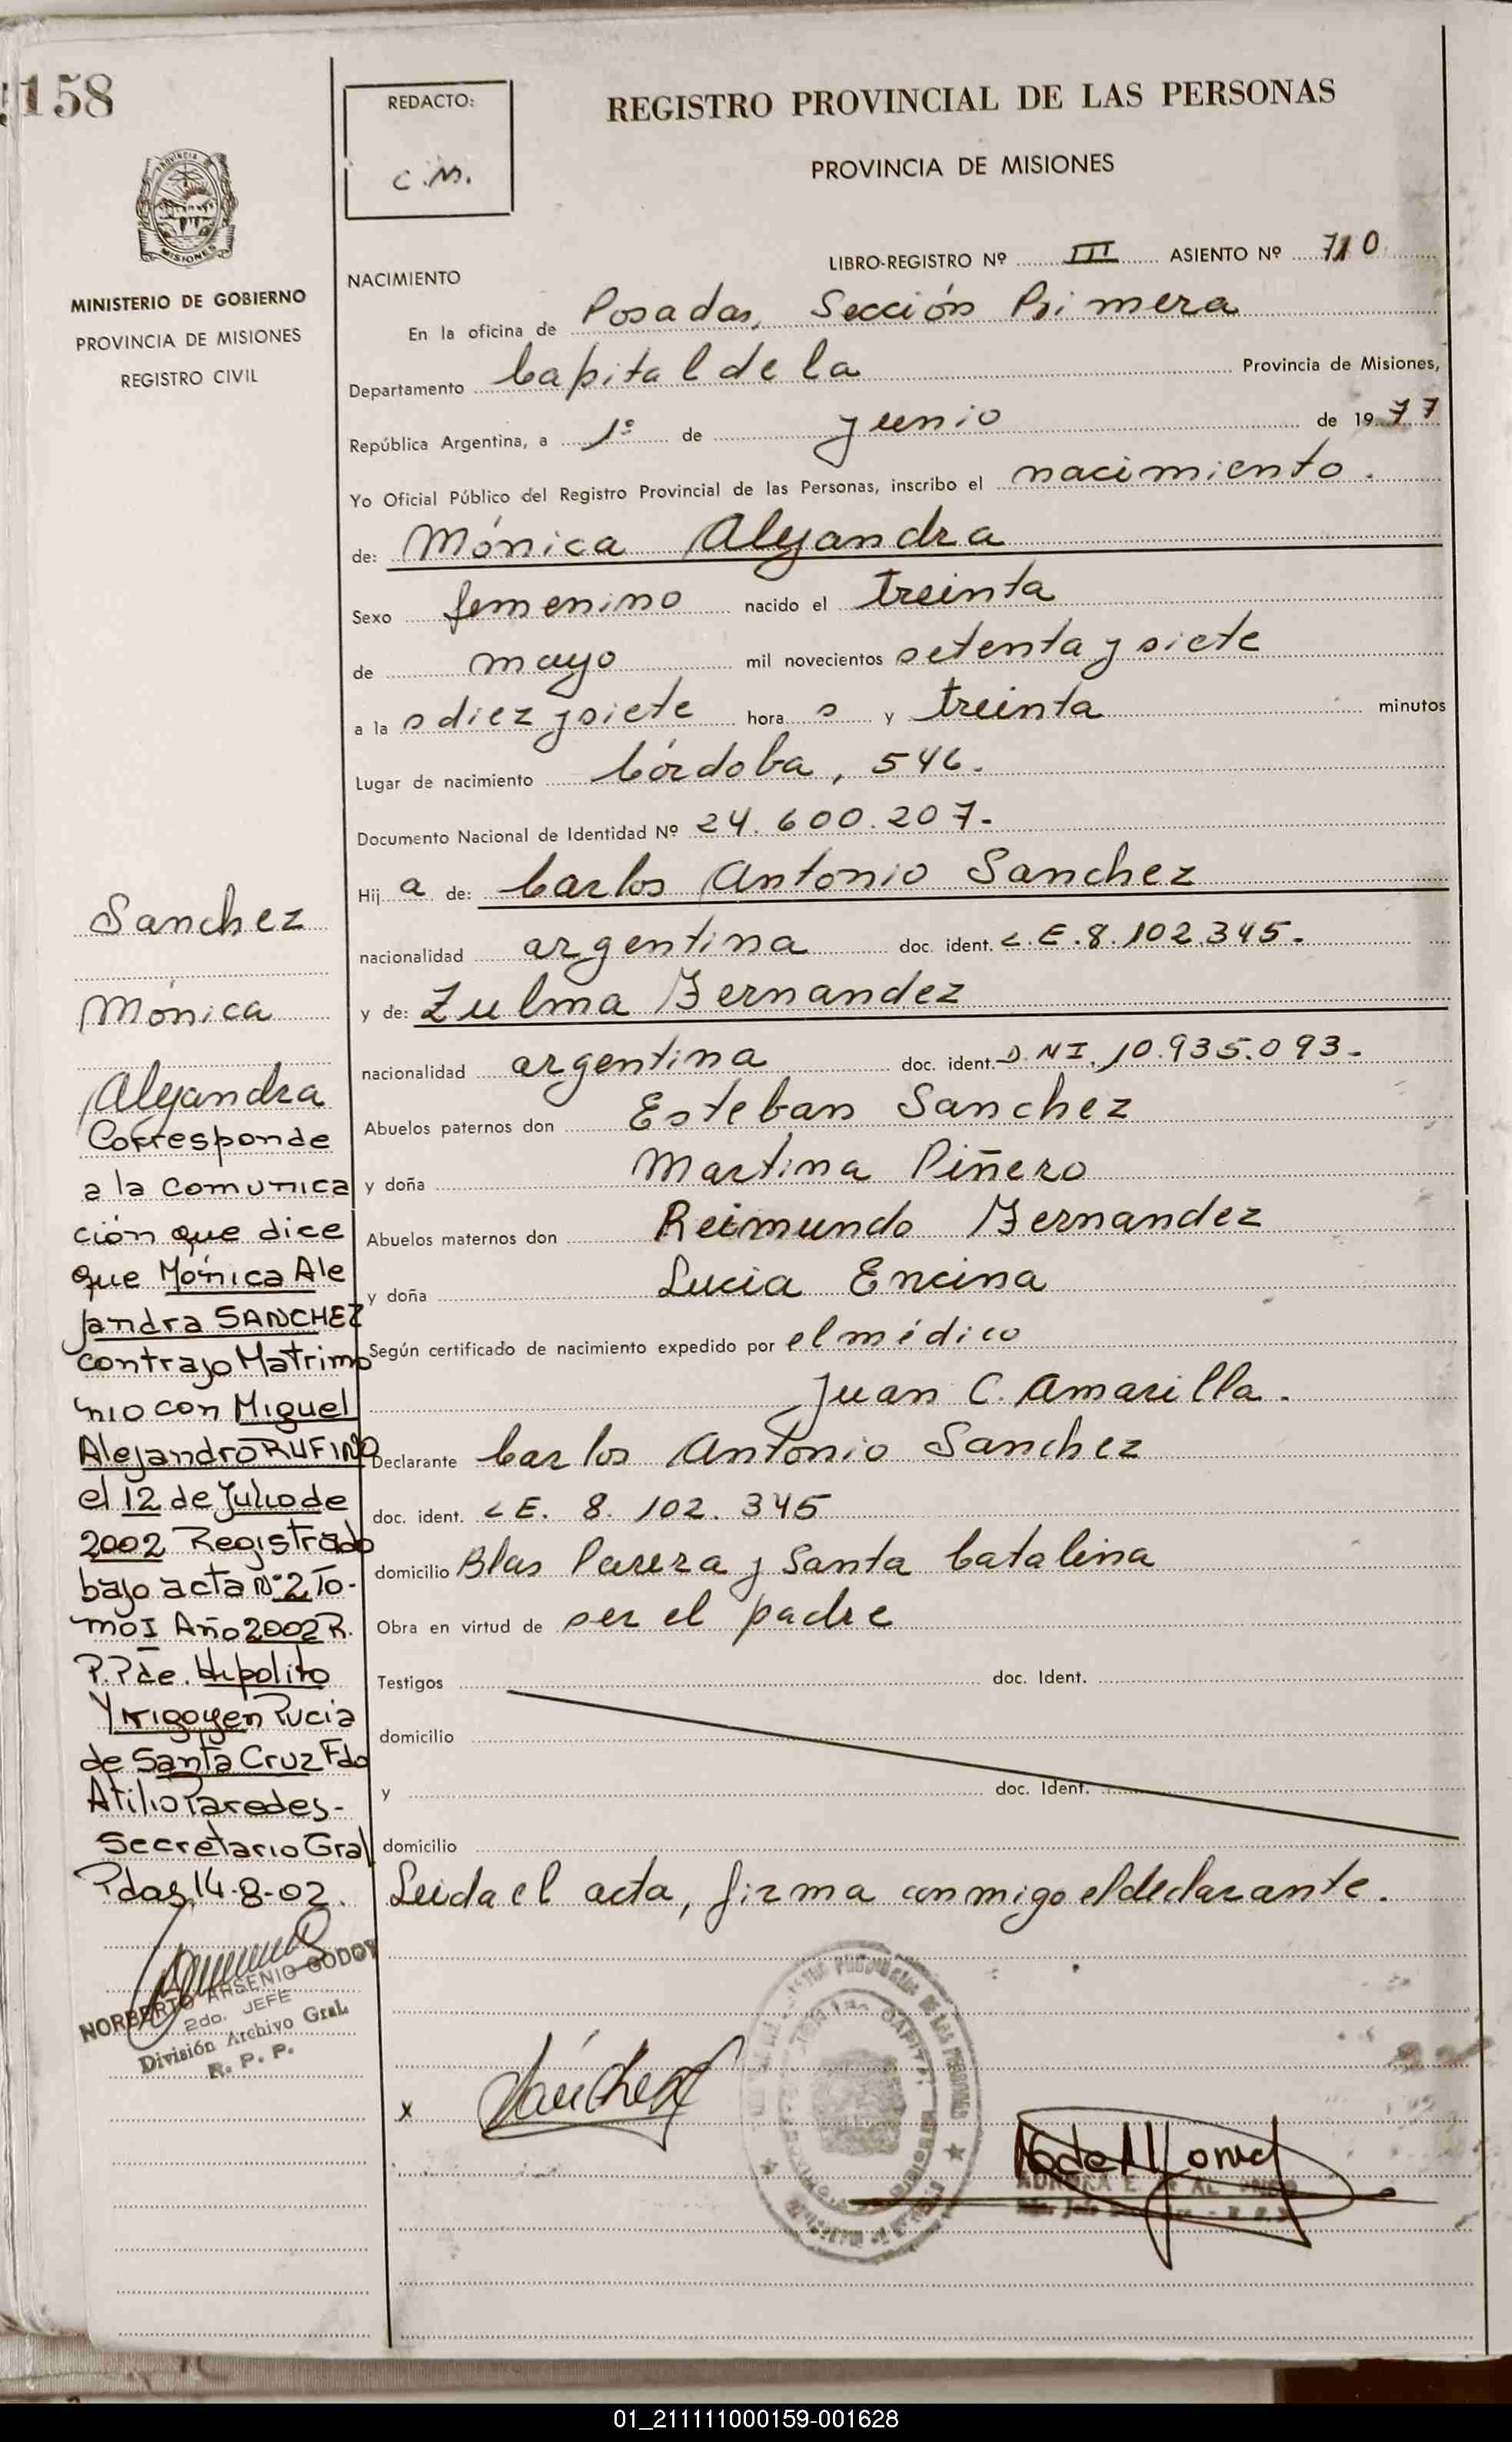 158
REDACTO:
C.M.
REGISTRO PROVINCIAL DE LAS PERSONAS
PROVINCIA DE MISIONES
MISIONES
MINISTERIO DE GOBIERNO
PROVINCIA DE MISIONES
REGISTRO CIVIL
LIBRO-REGISTRO Nº III ASIENTO Nº 710
NACIMIENTO
En la oficina de Posadas, Sección Primera
Departamento Capital de la Provincia de Misiones,
República Argentina, a 1º de junio de 1977
Yo Oficial Público del Registro Provincial de las Personas, inscribo el nacimiento.
de: Mónica Alejandra
Sexo femenino nacido el treinta
de mayo mil novecientos setenta y siete
a la s diez y siete hora s y treinta minutos
Lugar de nacimiento Córdoba, 546.
Documento Nacional de Identidad Nº 24.600.207.-
Hij a de: Carlos Antonio Sanchez
nacionalidad argentina doc. ident. L.E. 8.102.345.-
y de: Zulma Fernandez
nacionalidad argentina doc. ident. D.N.I. 10.935.093.-
Abuelos paternos don Esteban Sanchez
y doña Martina Piñero
Abuelos maternos don Reimundo Fernandez
y doña Lucia Encina
Según certificado de nacimiento expedido por el médico
Juan C. Amarilla.
Declarante Carlos Antonio Sanchez
doc. ident. L.E. 8.102.345
domicilio Blas Parera y Santa Catalina
Obra en virtud de ser el padre
Testigos doc. Ident.
domicilio
y doc. Ident.
domicilio
Leida el acta, firma conmigo el declarante.
Sanchez
Mónica
Alejandra
Corresponde
a la comunica
ción que dice
que Mónica Ale
jandra SANCHEZ
contrajo Matrimo
nio con Miguel
Alejandro RUFINO
el 12 de Julio de
2002 Registrado
bajo acta Nº 2 To-
mo I Año 2002 R.
P.P de. Hipolito
Yrigoyen Pucia
de Santa Cruz Fdo
Atilio Paredes-
Secretario Gral
Pdas, 14-8-02.
NORBERTO ARSENIO GODOY
2do. JEFE
División Archivo Gral.
R. P. P.
x Sánchez
01_211111000159-001628